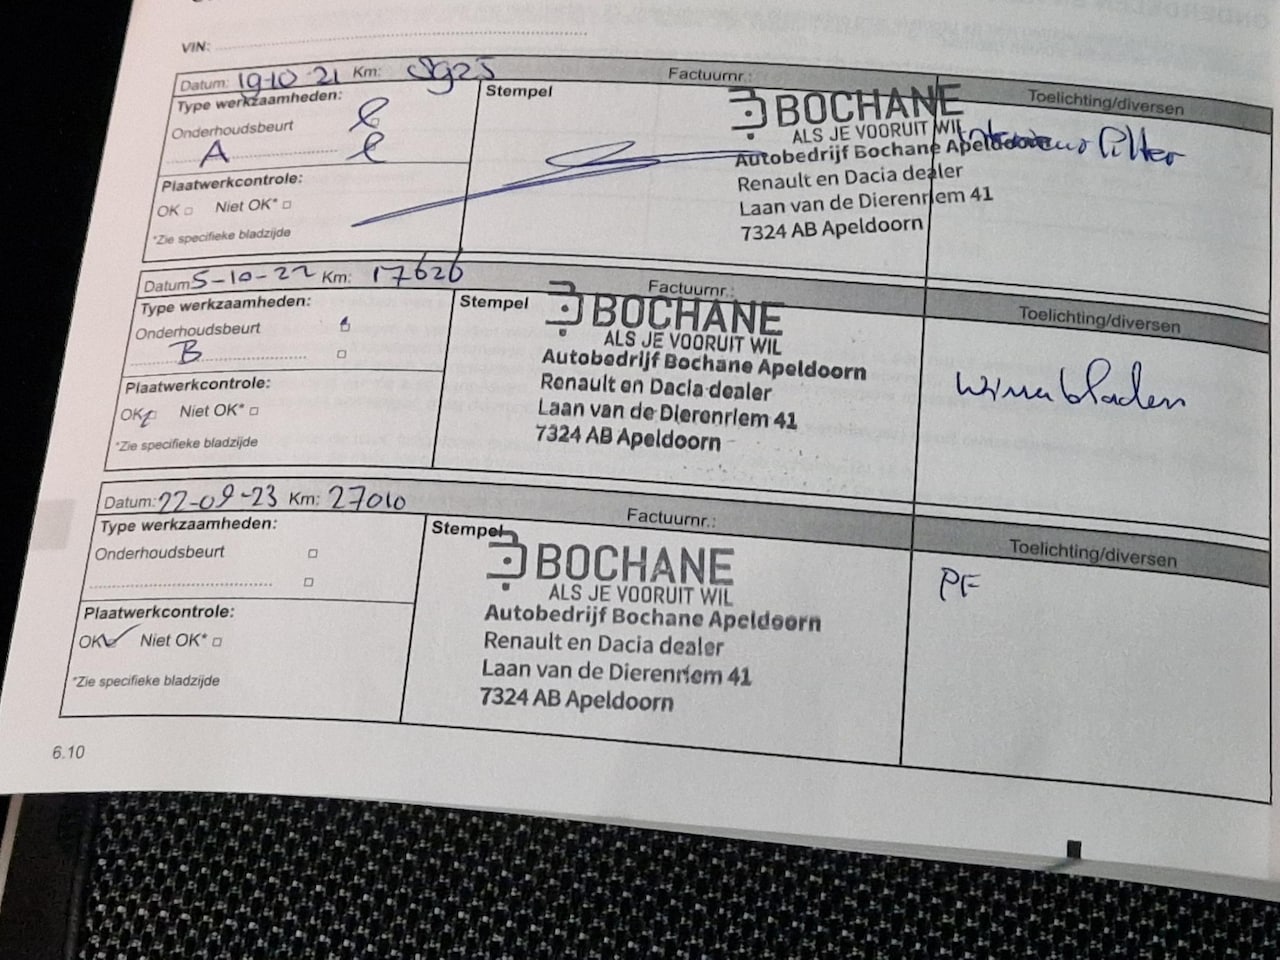 VIN:
Datum: 19-10-21 Km: 8925 Factuurnr.:
Type werkzaamheden:
Stempel
Toelichting/diversen
Onderhoudsbeurt
A
BOCHANE
ALS JE VOORUIT WIL
Autobedrijf Bochane Apeldoorn
Renault en Dacia dealer
Laan van de Dierenriem 41
7324 AB Apeldoorn
Interieur filter
Plaatwerkcontrole:
OK □ Niet OK* □
*Zie specifieke bladzijde
Datum: 5-10-22 Km: 17626 Factuurnr.:
Type werkzaamheden:
Stempel
Toelichting/diversen
Onderhoudsbeurt
B
BOCHANE
ALS JE VOORUIT WIL
Autobedrijf Bochane Apeldoorn
Renault en Dacia dealer
Laan van de Dierenriem 41
7324 AB Apeldoorn
Wisserbladen
Plaatwerkcontrole:
OK □ Niet OK* □
*Zie specifieke bladzijde
Datum: 22-09-23 Km: 27010 Factuurnr.:
Type werkzaamheden:
Stempel
Toelichting/diversen
Onderhoudsbeurt □
BOCHANE
ALS JE VOORUIT WIL
Autobedrijf Bochane Apeldoorn
Renault en Dacia dealer
Laan van de Dierenriem 41
7324 AB Apeldoorn
PF
Plaatwerkcontrole:
OK ✓ Niet OK* □
*Zie specifieke bladzijde
6.10